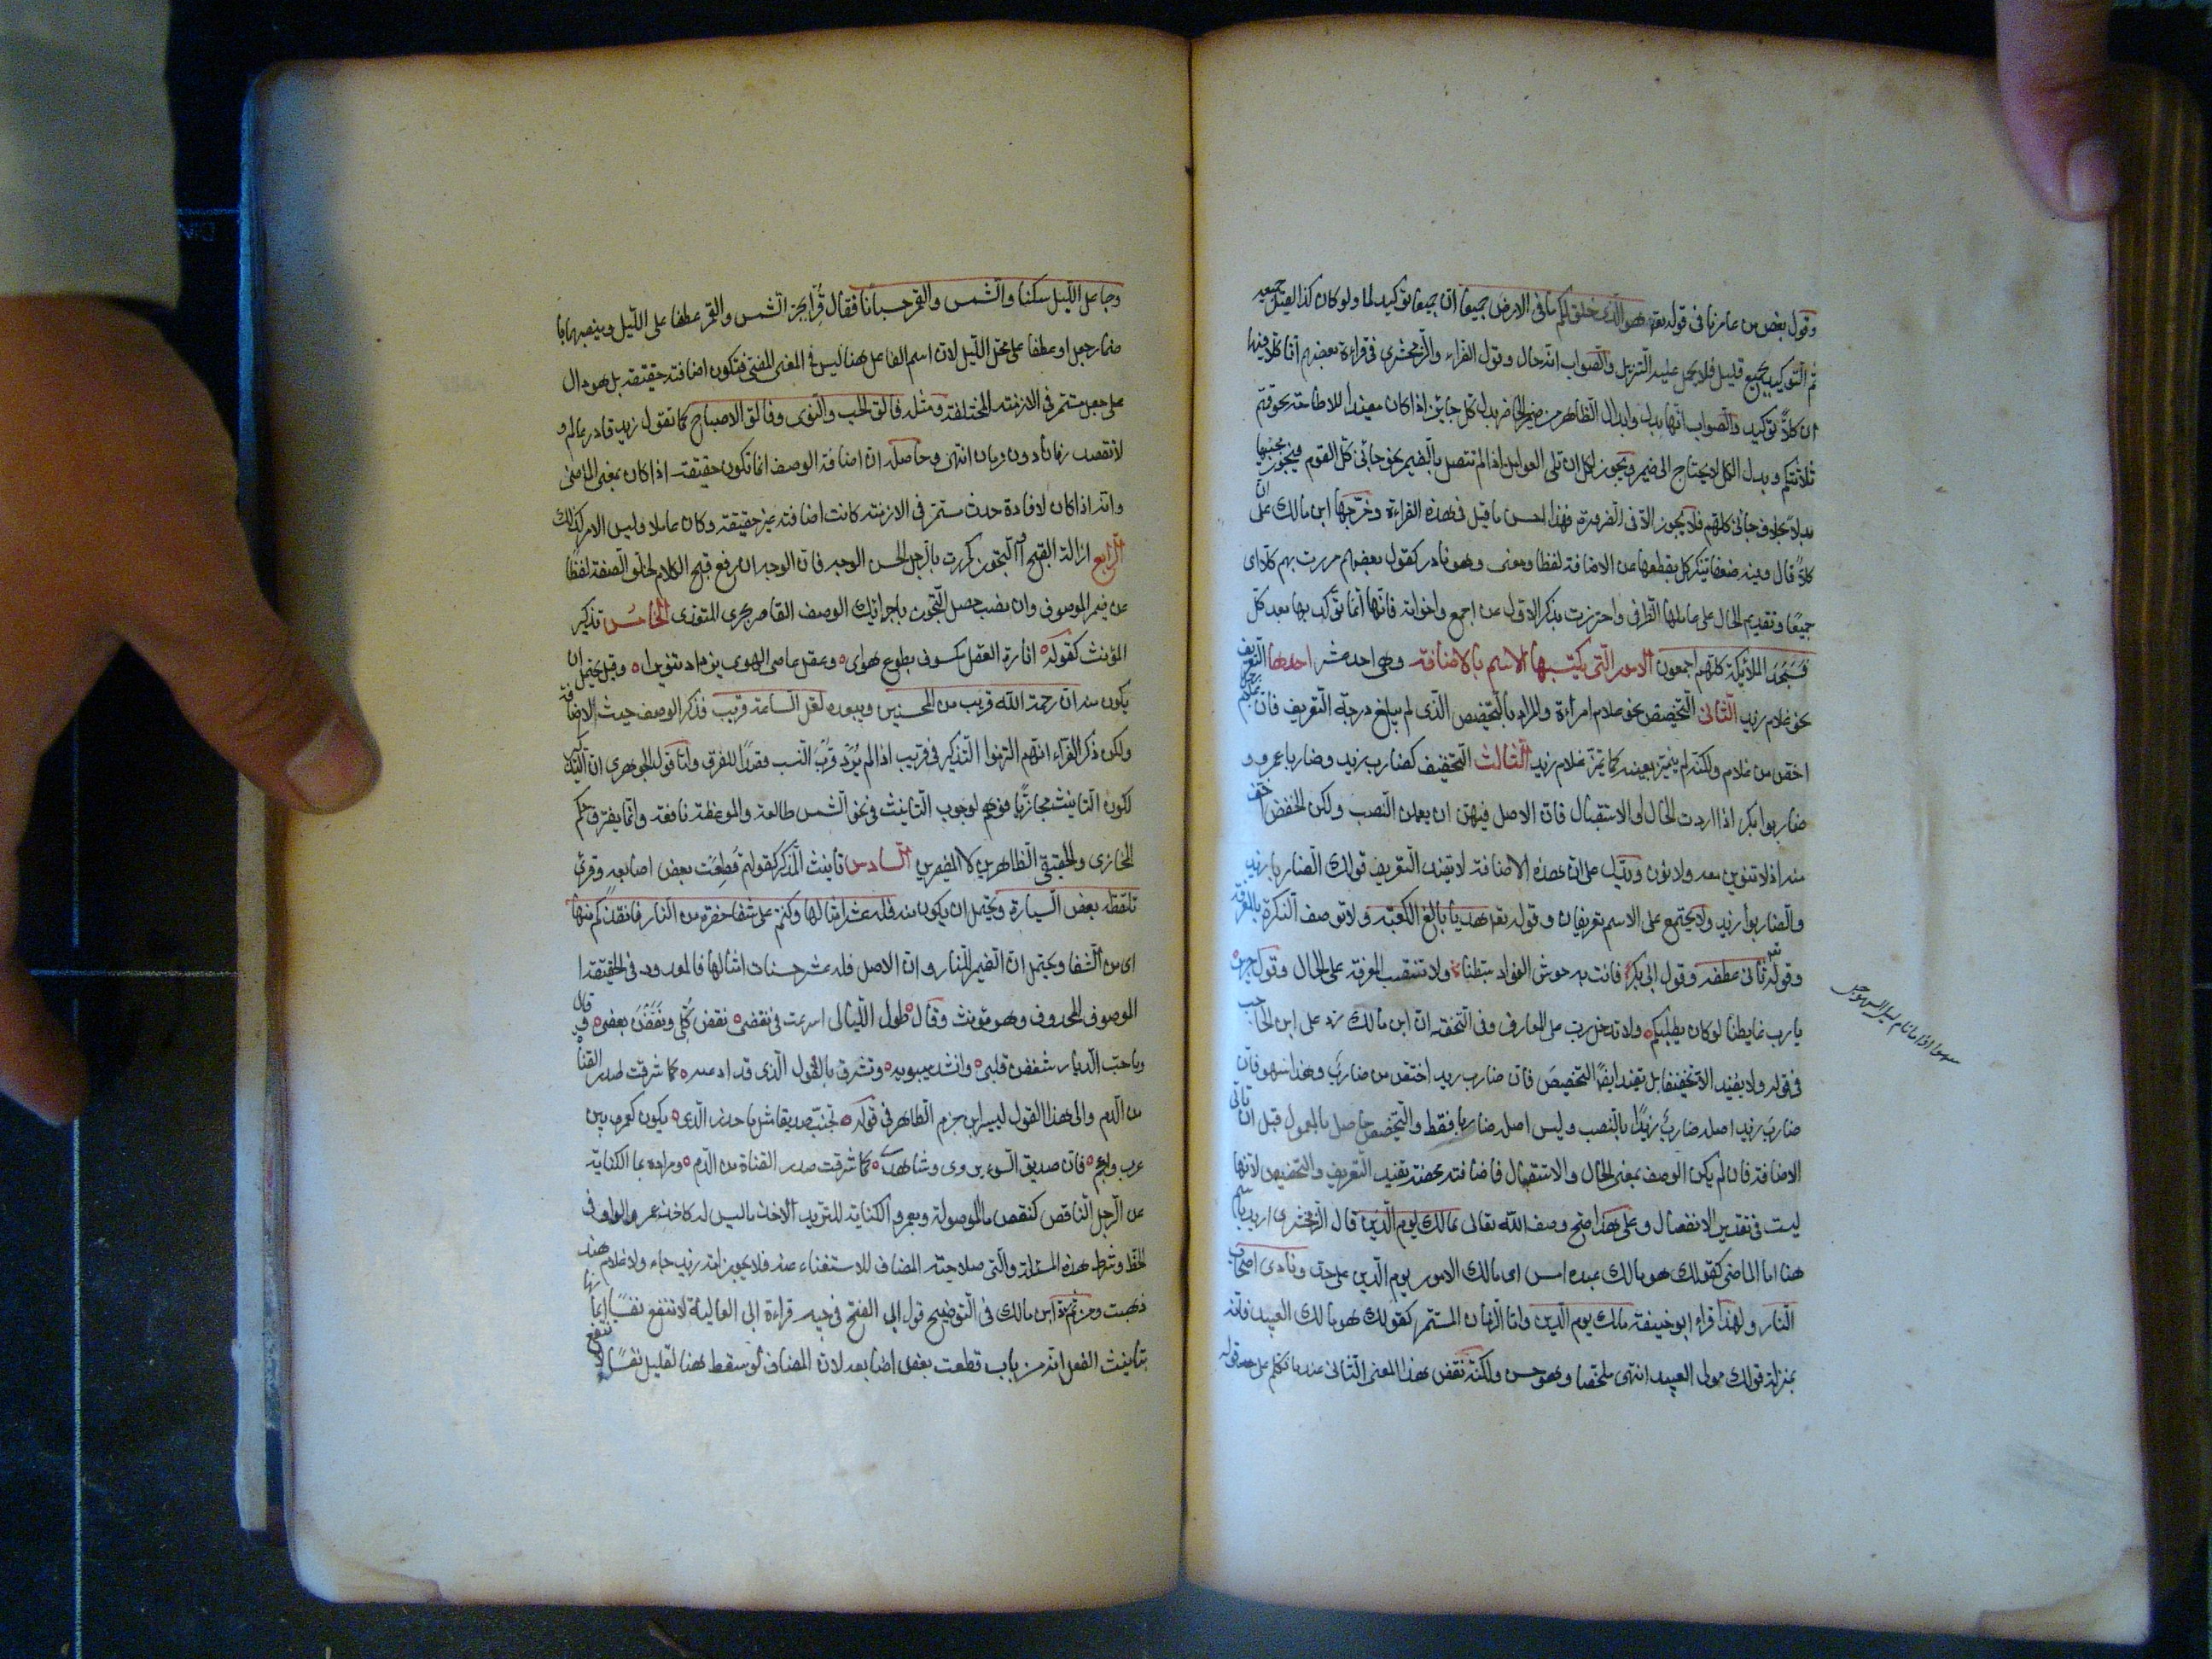 وقول بعض من عاصرنا فى قوله تعه هو الذى خلق لكم ما فى الارض جميعا ان جميعا توكيد لما ولو كان كذا لقيل جميعه
ثم التوكيد بجميع قليل فلا يحمل عليه التنزيل والصواب انه حال وقول الفراء والزمخشرى فى قراءة بعضهم انا كلا فيها
ان كلا توكيد والصواب انها بدل وابدال الظاهر من ضمير الحاضر بدل كل جايز اذا كان مفيدا للاحاطة نحو قمتم
ثلاثتكم وبدل الكل لا يحتاج الى ضمير ويجوز لكل ان تلى العوامل اذا لم تتصل بالضمير نحو جائنى كل القوم فيجوز مجيئها
بدلا بخلاف جائنى كلهم فلا يجوز الا فى الضرورة فهذا احسن ما قيل فى هذه القراءة وخرجها ابن مالك على ان
كلا حال وفيه ضعفان تنكير كل بقطعها عن الاضافة لفظا ومعنى وهو نادر كقول بعضهم مررت بهم كلا اى
جميعا وتقديم الحال على عاملها الظرفى واحترزت بذكر الاول عن اجمع واخواته فانها انما تؤكد بها بعد كل
فسجد الملائكة كلهم اجمعون الامور التى يكتسبها الاسم بالاضافة وهى احد عشر احدها التعريف
نحو غلام زيد الثانى التخصيص نحو غلام امراءة والمراد بالتخصيص الذى لم يبلغ درجة التعريف فان غلام رجل
اخص من غلام ولكنه لم يتميز بعينه كما يتميز غلام زيد الثالث التخفيف كضارب زيد وضاربا عمرو و
ضاربوا بكر اذا اردت الحال او الاستقبال فان الاصل فيهن ان يعملن النصب ولكن الخفض اخف
منه اذ لا تنوين معه ولا نون ويدل على ان هذه الاضافة لا تفيد التعريف قولك الضاربا زيد
والضاربوا زيد ولا يجتمع على الاسم تعريفان وقوله تعه هديا بالغ الكعبة ولا توصف النكرة بالمعرفة
وقوله تعه ثانى عطفه وقول ابى بكر فاتت به حوش الفواد مبطنا ولا تنتصب المعرفة على الحال وقول جرير
يا رب غابطنا لو كان يطلبكم ولا تدخل رب على المعارف وفى التحفة ان ابن مالك رد على ابن الحاجب
فى قوله ولا يفيد الا تخفيفا بل تفيد ايضا التخصيص فان ضارب زيد اخص من ضارب وهذا سهو فان
ضارب زيد اصله ضارب زيدا بالنصب وليس اصله ضاربا فقط والتخصيص حاصل بالمعمول قبل ان تاتى
الاضافة فان لم يكن الوصف بمعنى الحال والاستقبال فاضافته محضة تفيد التعريف والتخصيص لانها
ليست فى تقدير الانفصال وعلى هذا صح وصف الله تعالى بمالك يوم الدين قال الزمخشرى اريد باسم
هنا اما الماضى كقولك هو مالك عبده امس اى مالك الامور يوم الدين على حد ونادى اصحاب
النار ولهذا قراء ابو حنيفة مالك يوم الدين واما الزمان المستمر كقولك هو مالك العبيد فانه
بمنزلة قولك مولى العبيد انتهى ملخصا وهو حسن ولكنه نقض هذا المعنى الثانى عند ما تكلم على قوله
وجاعل الليل سكنا والشمس والقمر حسبانا فقال قرا بجر الشمس والقمر عطفا على الليل وبنصبهما با
ضمار جعل او عطفا على محل الليل لان اسم الفاعل هنا ليس فى المعنى المضى فتكون اضافته حقيقة بل هو دال
على جعل مستمر فى الازمنة المختلفة ومثله فالق الحب والنوى وفالق الاصباح كما تقول زيد قادر عالم و
لا تقصد زمانا دون زمان انتهى وحاصله ان اضافة الوصف انما تكون حقيقة اذا كان بمعنى الماضى
وانه اذا كان لافادة حدث مستمر فى الازمنة كانت اضافته غير حقيقة وكان عاملا وليس الامر كذلك
الرابع ازالة القبح او التجوز كمررت بالرجل الحسن الوجه فان الوجه ان رفع قبح الكلام لخلو الصفة لفظا
عن ضمير الموصوف وان نصب حصل التجوز باجرائك الوصف القاصر مجرى المتعدى الخامس تذكير
المؤنث كقوله انارة العقل مكسوف بطوع هوى وعقل عاصى الهوى يزداد تنويرا وقيل يحتمل ان
يكون منه ان رحمة الله قريب من المحسنين ويبعده لعل الساعة قريب فذكر الوصف حيث الاضافة
ولكن ذكر الفراء انهم التزموا التذكير فى قريب اذا لم يرد قرب النسب قصدا للفرق واما قول الجوهرى ان التذكير
لكون التانيث مجازيا فوهم لوجوب التانيث فى نحو الشمس طالعة والموعظة نافعة وانما يفترق حكم
المجازى والحقيقى الظاهرين لا المضمرين السادس تانيث المذكر كقولهم قطعت بعض اصابعه وقرئ
تلتقطه بعض السيارة ويحتمل ان يكون منه فله عشر امثالها وكنتم على شفا حفرة من النار فانقذكم منها
اى من الشفا ويحتمل ان الضمير للنار وان الاصل فله عشر حسنات امثالها فالمعدود فى الحقيقة ا
لموصوف المحذوف وهو مؤنث وقال طول الليالى اسرعت فى نقضى نقضن كلى ونقضن بعضى وقال
وما حب الديار شغفن قلبى وانشد سيبويه وتشرق بالقول الذى قد اذعته كما شرقت صدر القناة
من الدم والى هذا القول يشير ابن حزم الظاهرى فى قوله تجنب صديقا مثل ما واحذر الذى يكون كعمرو بين
عرب واعجم فان صديق السوء يزرى وشاهدى كما شرقت صدر القناة من الدم ومراده بما الكناية
عن الرجل الناقص كنقص ما الموصولة وبعمرو الكناية للمتزيد الاخذ ما ليس له كاخذ عمرو الواو فى
الخط وشرط هذه المسئلة والتى صلاحية المضاف للاستغناء عنه فلا يجوز امة زيد جاء ولا غلام هند
ذهبت ومن ثم رد ابن مالك فى التوضيح قول ابى الفتح فى توجيه قراءة ابى العالية لا تنفع نفسا ايمانها
بتانيث الفعل انه من باب قطعت بعض اصابعه لان المضاف لو سقط هنا لقليل نفسا لا تنفع